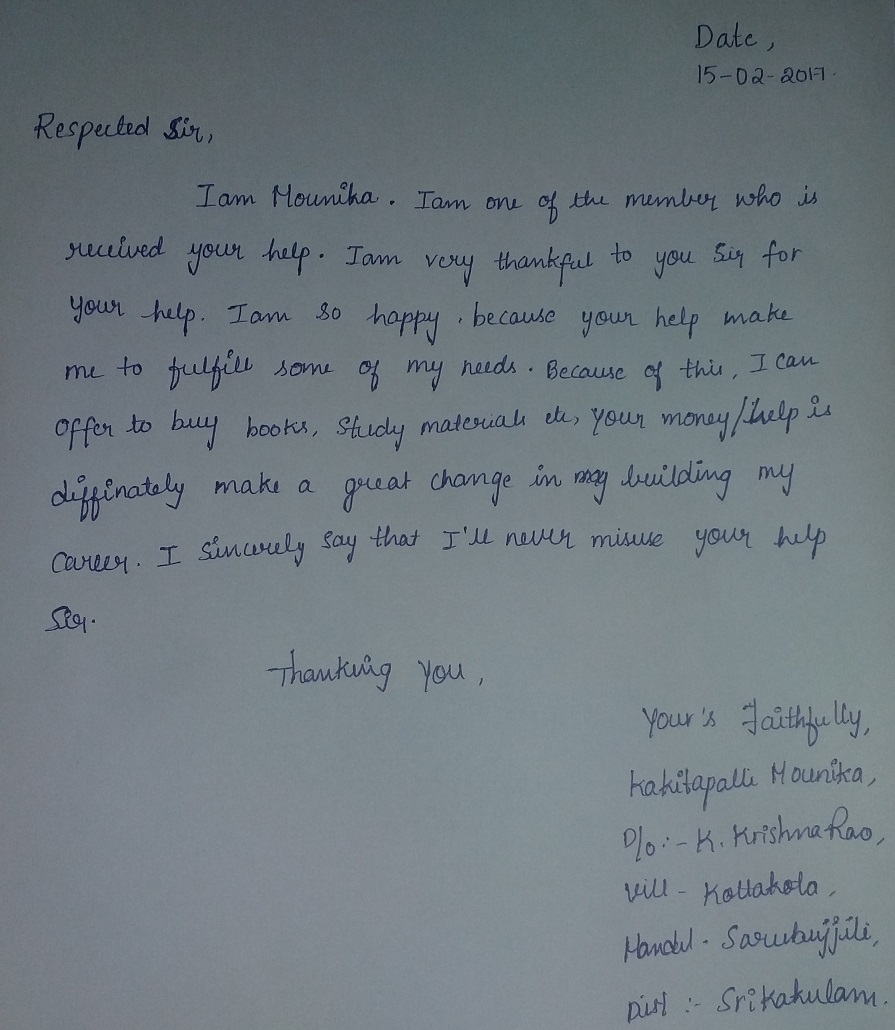 Date,
15-02-2017.
Respected Sir,
Iam Mounika. Iam one of the member who is
received your help. Iam very thankful to you Sir for
your help. Iam so happy, because your help make
me to fulfill some of my needs. Because of this, I can
offer to buy books, Study materials etc, your money/help is
diffinately make a great change in building my
career. I sincerely say that I'll never misuse your help
Sir.
Thanking you,
Your's Faithfully,
Kakitapalli Mounika,
D/o:- K. Krishna Rao,
Vill - Kottakola,
Mandal - Sarubujjili,
Dist :- Srikakulam.